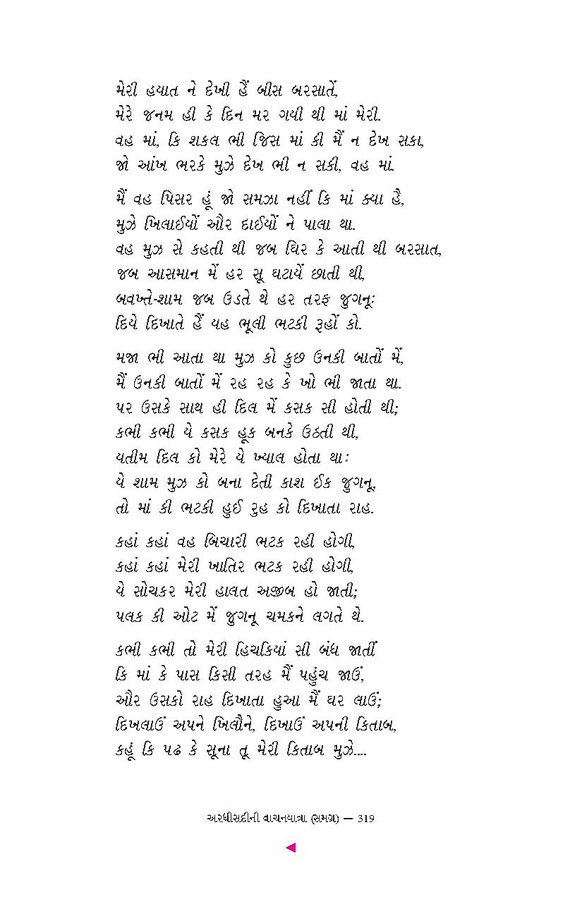 મેરી હયાત ને દેખી હૈં બીસ બરસાતેં,
મેરે જનમ હી કે દિન મર ગયી થી માં મેરી.
વહ માં, કિ શકલ ભી જિસ માં કી મૈં ન દેખ સકા,
જો આંખ ભરકે મુઝે દેખ ભી ન સકી, વહ માં.
મૈં વહ પિસર હૂં જો સમઝા નહીં કિ માં ક્યા હૈ,
મુઝે ખિલાઈયોં ઔર દાઈયોં ને પાલા થા.
વહ મુઝ સે કહતી થી જબ ઘિર કે આતી થી બરસાત,
જબ આસમાન મેં હર સૂ ઘટાયેં છાતી થી,
બવખ્તે-શામ જબ ઉડતે થે હર તરફ જુગનૂઃ
દિયે દિખાતે હૈં યહ ભૂલી ભટકી રૂહોં કો.
મજા ભી આતા થા મુઝ કો કુછ ઉનકી બાતોં મેં,
મૈં ઉનકી બાતોં મેં રહ રહ કે ખો ભી જાતા થા.
પર ઉસકે સાથ હી દિલ મેં કસક સી હોતી થી;
કભી કભી યે કસક હૂક બનકે ઉઠતી થી,
યતીમ દિલ કો મેરે યે ખ્યાલ હોતા થાઃ
યે શામ મુઝ કો બના દેતી કાશ ઈક જુગનૂ,
તો માં કી ભટકી હુઈ રુહ કો દિખાતા રાહ.
કહાં કહાં વહ બિચારી ભટક રહી હોગી,
કહાં કહાં મેરી ખાતિર ભટક રહી હોગી,
યે સોચકર મેરી હાલત અજીબ હો જાતી;
પલક કી ઓટ મેં જુગનૂ ચમકને લગતે થે.
કભી કભી તો મેરી હિચકિયાં સી બંધ જાતીં
કિ માં કે પાસ કિસી તરહ મૈં પહુંચ જાઉં,
ઔર ઉસકો રાહ દિખાતા હુઆ મૈં ઘર લાઉં;
દિખલાઉં અપને ખિલૌને, દિખાઉં અપની કિતાબ,
કહૂં કિ પઢ કે સૂના તૂ મેરી કિતાબ મુઝે....
અરધીસદીની વાચનયાત્રા (સમગ્ર) — 319